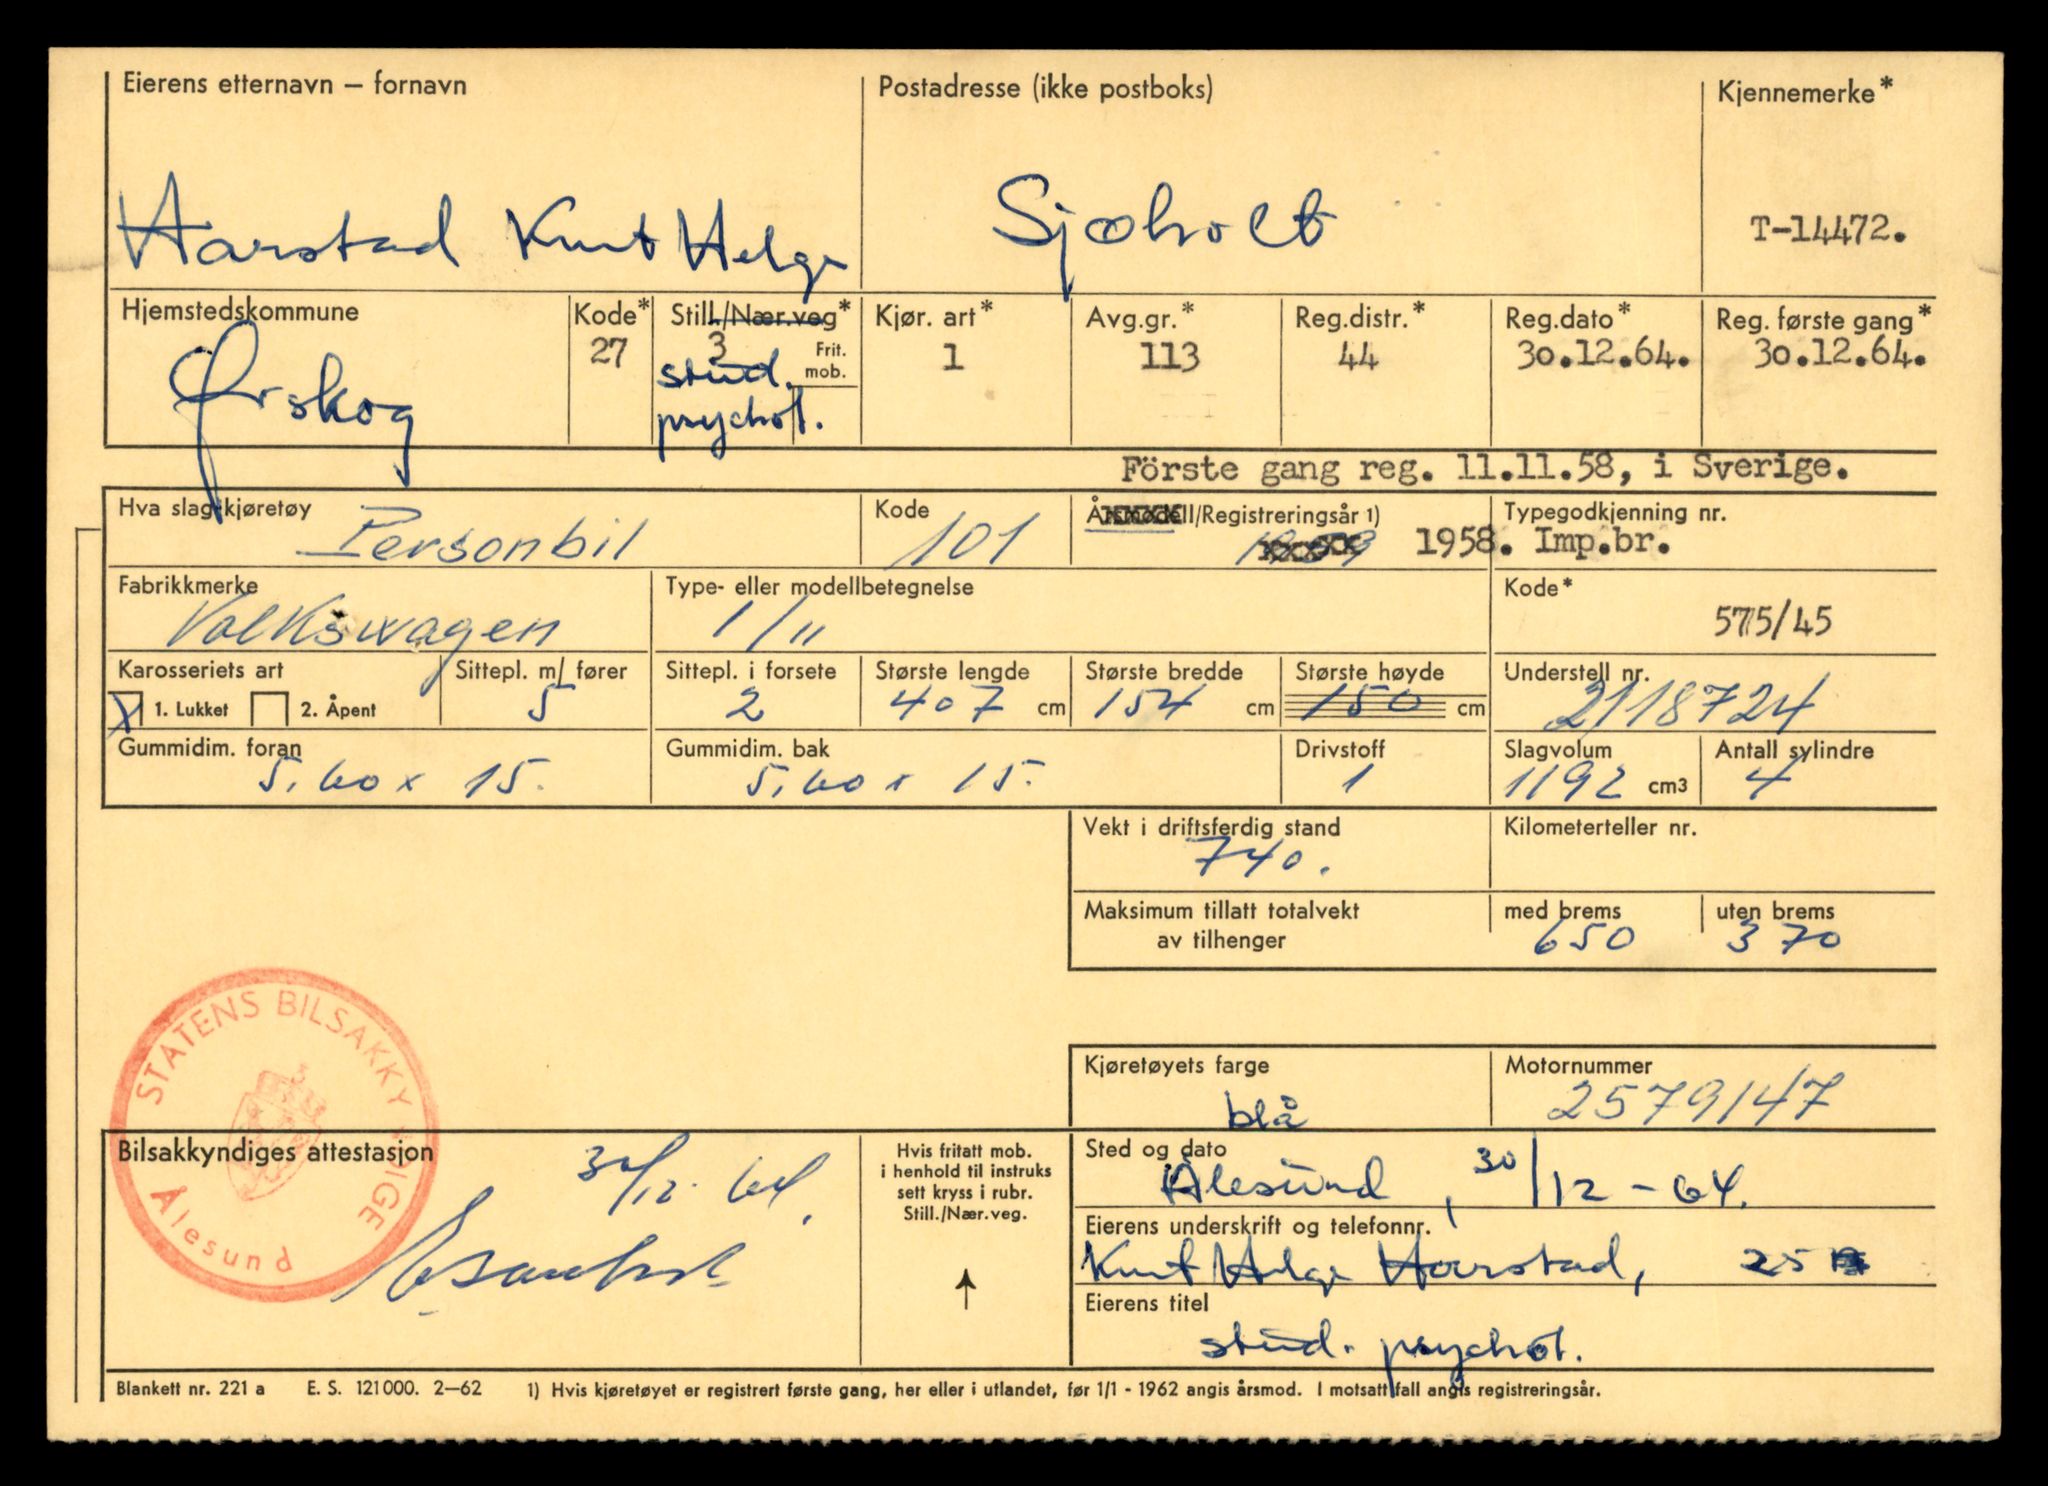 Eierens etternavn – fornavn
Postadresse (ikke postboks)
Kjennemerke*
Harstad Kurt Helge
Sjøholt
T-14472.
Hjemstedskommune
Kode*
Still./Nær.veg*
Kjør. art*
Avg.gr.*
Reg.distr.*
Reg.dato*
Reg. første gang*
Ørskog
27
3
Frit. mob.
1
113
44
30.12.64.
30.12.64.
stud.
psychol.
Förste gang reg. 11.11.58, i Sverige.
Hva slag kjøretøy
Kode
Årsmodell/Registreringsår 1)
Typegodkjenning nr.
Personbil
101
1958. Imp.br.
Fabrikkmerke
Type- eller modellbetegnelse
Kode*
Volkswagen
1/11
575/45
Karosseriets art
Sittepl. m/ fører
Sittepl. i forsete
Største lengde
Største bredde
Største høyde
Understell nr.
X 1. Lukket
2. Åpent
5
2
407 cm
154 cm
150 cm
2118724
Gummidim. foran
Gummidim. bak
Drivstoff
Slagvolum
Antall sylindre
5,60 x 15.
5,60 x 15.
1
1192 cm3
4
Vekt i driftsferdig stand
Kilometerteller nr.
740.
Maksimum tillatt totalvekt
av tilhenger
med brems
uten brems
650
370
STATENS BILSAKKYNDIGE
Ålesund
Kjøretøyets farge
Motornummer
blå
2579147
Bilsakkyndiges attestasjon
30/12. 64.
Hvis fritatt mob.
i henhold til instruks
sett kryss i rubr.
Still./Nær.veg.
↑
Sted og dato
Ålesund, 30/12 - 64.
Eierens underskrift og telefonnr.
Kurt Helge Harstad, 25
Eierens titel
stud. psychol.
Blankett nr. 221 a E. S. 121000. 2–62 1) Hvis kjøretøyet er registrert første gang, her eller i utlandet, før 1/1 - 1962 angis årsmod. I motsatt fall angis registreringsår.